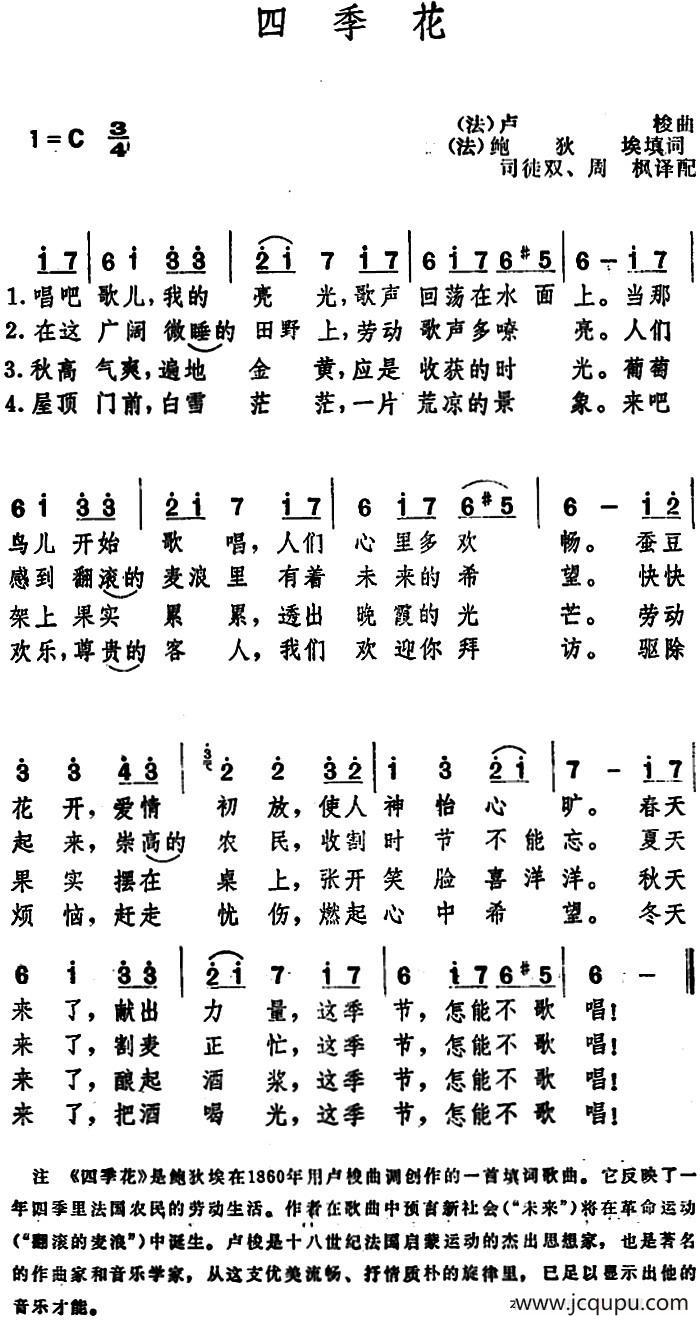 四季花
1=C 3/4
(法)卢 梭曲
(法)鲍 狄 埃填词
司徒双、周 枫译配
i 7 | 6 i 3̇ 3̇ | 2̇ i 7 i 7 | 6 i 7 6 #5 | 6 – i 7 |
1. 唱吧 歌儿,我的 亮 光,歌声 回荡在水 面 上。当那
2. 在这 广阔 微睡的 田野 上,劳动 歌声多嘹 亮。人们
3. 秋高 气爽,遍地 金 黄,应是 收获的时 光。葡萄
4. 屋顶 门前,白雪 茫 茫,一片 荒凉的景 象。来吧
6 i 3̇ 3̇ | 2̇ i 7 i 7 | 6 i 7 6 #5 | 6 – i 2̇ |
鸟儿 开始 歌 唱,人们 心里多欢 畅。蚕豆
感到 翻滚的 麦浪 里 有着 未来的希 望。快快
架上 果实 累 累,透出 晚霞的光 芒。劳动
欢乐,尊贵的 客 人,我们 欢迎你拜 访。驱除
3̇ 3̇ 4̇ 3̇ | 3̇ 2̇ 2̇ 3̇ 2̇ | i 3̇ 2̇ i | 7 – i 7 |
花 开,爱情 初 放,使人 神怡心 旷。春天
起 来,崇高的 农 民,收割 时 节 不 能 忘。夏天
果 实 摆在 桌 上,张开 笑 脸 喜 洋 洋。秋天
烦 恼,赶走 忧 伤,燃起 心 中 希 望。冬天
6 i 3̇ 3̇ | 2̇ i 7 i 7 | 6 i 7 6 #5 | 6 – ‖
来 了,献出 力 量,这季 节,怎能不歌 唱!
来 了,割麦 正 忙,这季 节,怎能不歌 唱!
来 了,酿起 酒 浆,这季 节,怎能不歌 唱!
来 了,把酒 喝 光,这季 节,怎能不歌 唱!
注 《四季花》是鲍狄埃在1860年用卢梭曲调创作的一首填词歌曲。它反映了一
年四季里法国农民的劳动生活。作者在歌曲中预言新社会(“未来”)将在革命运动
(“翻滚的麦浪”)中诞生。卢梭是十八世纪法国启蒙运动的杰出思想家,也是著名
的作曲家和音乐学家,从这支优美流畅、抒情质朴的旋律里,已足以显示出他的
音乐才能。
www.jcqupu.com